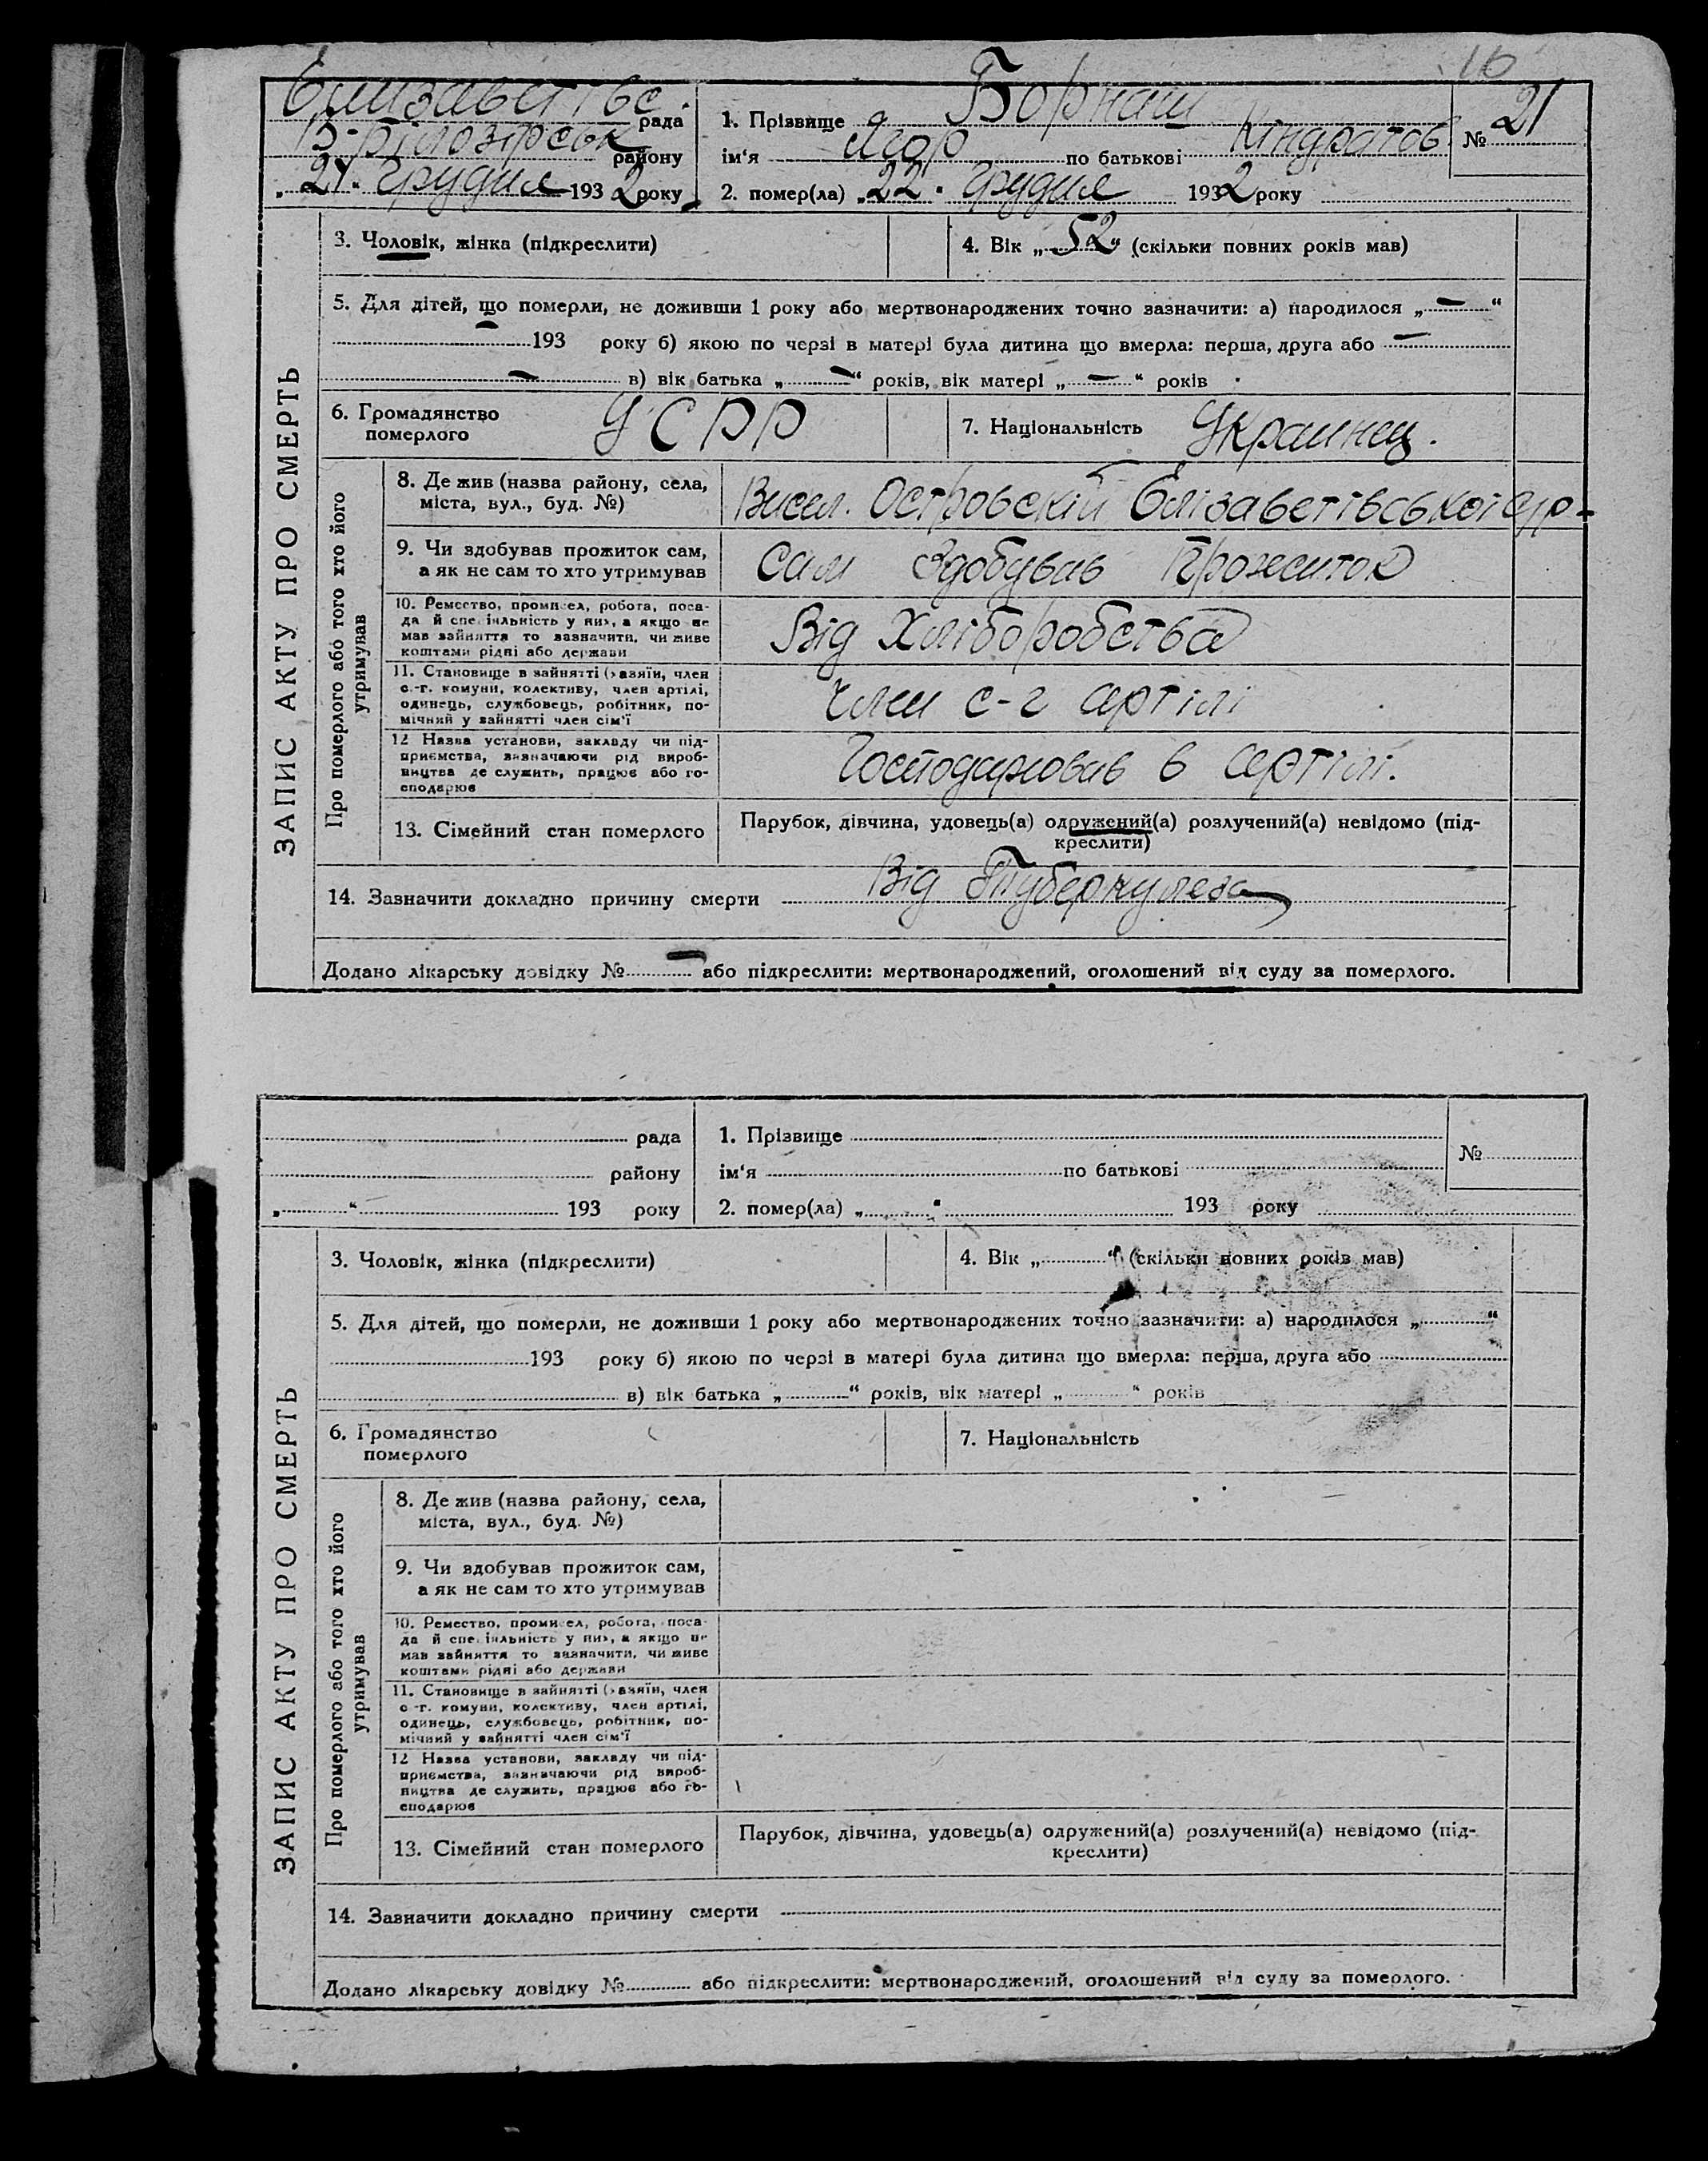 16
Єлизаветівс. рада
В-Білозірськ району
„21“ Грудня 1932 року
1. Прізвище Борнаш
ім‘я Ягор по батькові Кіндратов.
№ 21
2. помер(ла) „22“ Грудня 1932 року
ЗАПИС АКТУ ПРО СМЕРТЬ
3. Чоловік, жінка (підкреслити)
4. Вік „52“ (скільки повних років мав)
5. Для дітей, що померли, не доживши 1 року або мертвонароджених точно зазначити: а) народилося „—“
— 193 року б) якою по черзі в матері була дитина що вмерла: перша, друга або —
— в) вік батька „—“ років, вік матері „—“ років
6. Громадянство
померлого
УСРР
7. Національність Украинец.
Про померлого або того хто його
утримував
8. Де жив (назва району, села,
міста, вул., буд. №)
Висел. Островскій Єлізаветівської с/р-
9. Чи здобував прожиток сам,
а як не сам то хто утримував
Сам Здобував Прожиток
10. Ремество, промисел, робота, поса-
да й спеціяльність у них, а якщо не
мав зайняття то зазначити, чи живе
коштами рідні або держави
Від Хліборобства
11. Становище в зайнятті (хазяїн, член
с.-г. комуни, колективу, член артілі,
одинець, службовець, робітник, по-
мічний у зайнятті член сім‘ї
Член с-г артілі
12 Назва установи, закладу чи під-
приємства, зазначаючи рід вироб-
ництва де служить, працює або го-
сподарює
Господарював в артілі.
13. Сімейний стан померлого
Парубок, дівчина, удовець(а) одружений(а) розлучений(а) невідомо (під-
креслити)
14. Зазначити докладно причину смерти Від Туберкулеза
Додано лікарську довідку № — або підкреслити: мертвонароджений, оголошений від суду за померлого.
рада
району
„ “ 193 року
1. Прізвище
ім‘я по батькові
№
2. помер(ла) „ “ 193 року
ЗАПИС АКТУ ПРО СМЕРТЬ
3. Чоловік, жінка (підкреслити)
4. Вік „ “ (скільки повних років мав)
5. Для дітей, що померли, не доживши 1 року або мертвонароджених точно зазначити: а) народилося „ “
193 року б) якою по черзі в матері була дитина що вмерла: перша, друга або
в) вік батька „ “ років, вік матері „ “ років
6. Громадянство
померлого
7. Національність
Про померлого або того хто його
утримував
8. Де жив (назва району, села,
міста, вул., буд. №)
9. Чи здобував прожиток сам,
а як не сам то хто утримував
10. Ремество, промисел, робота, поса-
да й спеціяльність у них, а якщо не
мав зайняття то зазначити, чи живе
коштами рідні або держави
11. Становище в зайнятті (хазяїн, член
с.-г. комуни, колективу, член артілі,
одинець, службовець, робітник, по-
мічний у зайнятті член сім‘ї
12 Назва установи, закладу чи під-
приємства, зазначаючи рід вироб-
ництва де служить, працює або го-
сподарює
13. Сімейний стан померлого
Парубок, дівчина, удовець(а) одружений(а) розлучений(а) невідомо (під-
креслити)
14. Зазначити докладно причину смерти
Додано лікарську довідку № або підкреслити: мертвонароджений, оголошений від суду за померлого.